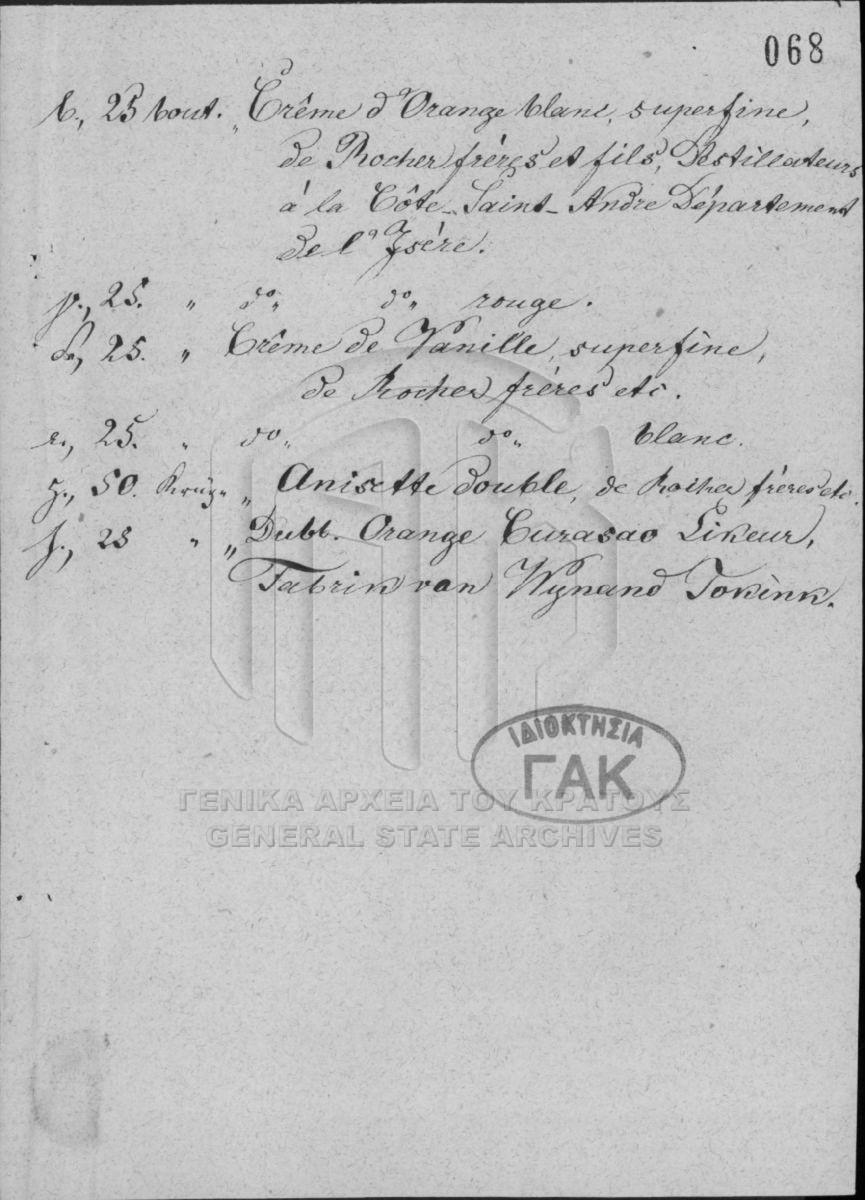 068
b., 25 bout. „ Crême d'Orange blanc, superfine,
de Rocher fréres et fils, Destillateurs
á la Côte-Saint-Andre Département
de l'Isére.
p., 25. „ do„ do„ rouge.
25. „ Crême de Vanille, superfine,
de Rocher fréres etc.
r., 25. „ do„ do„ blanc.
50. Krüge „ Anisette double, de Rocher fréres etc.
f., 25 „ „ Dubb. Orange Curasao Likeur,
Fabrik van Wynand Fokink.
ΙΔΙΟΚΤΗΣΙΑ
ΓΑΚ
ΓΕΝΙΚΑ ΑΡΧΕΙΑ ΤΟΥ ΚΡΑΤΟΥΣ
GENERAL STATE ARCHIVES